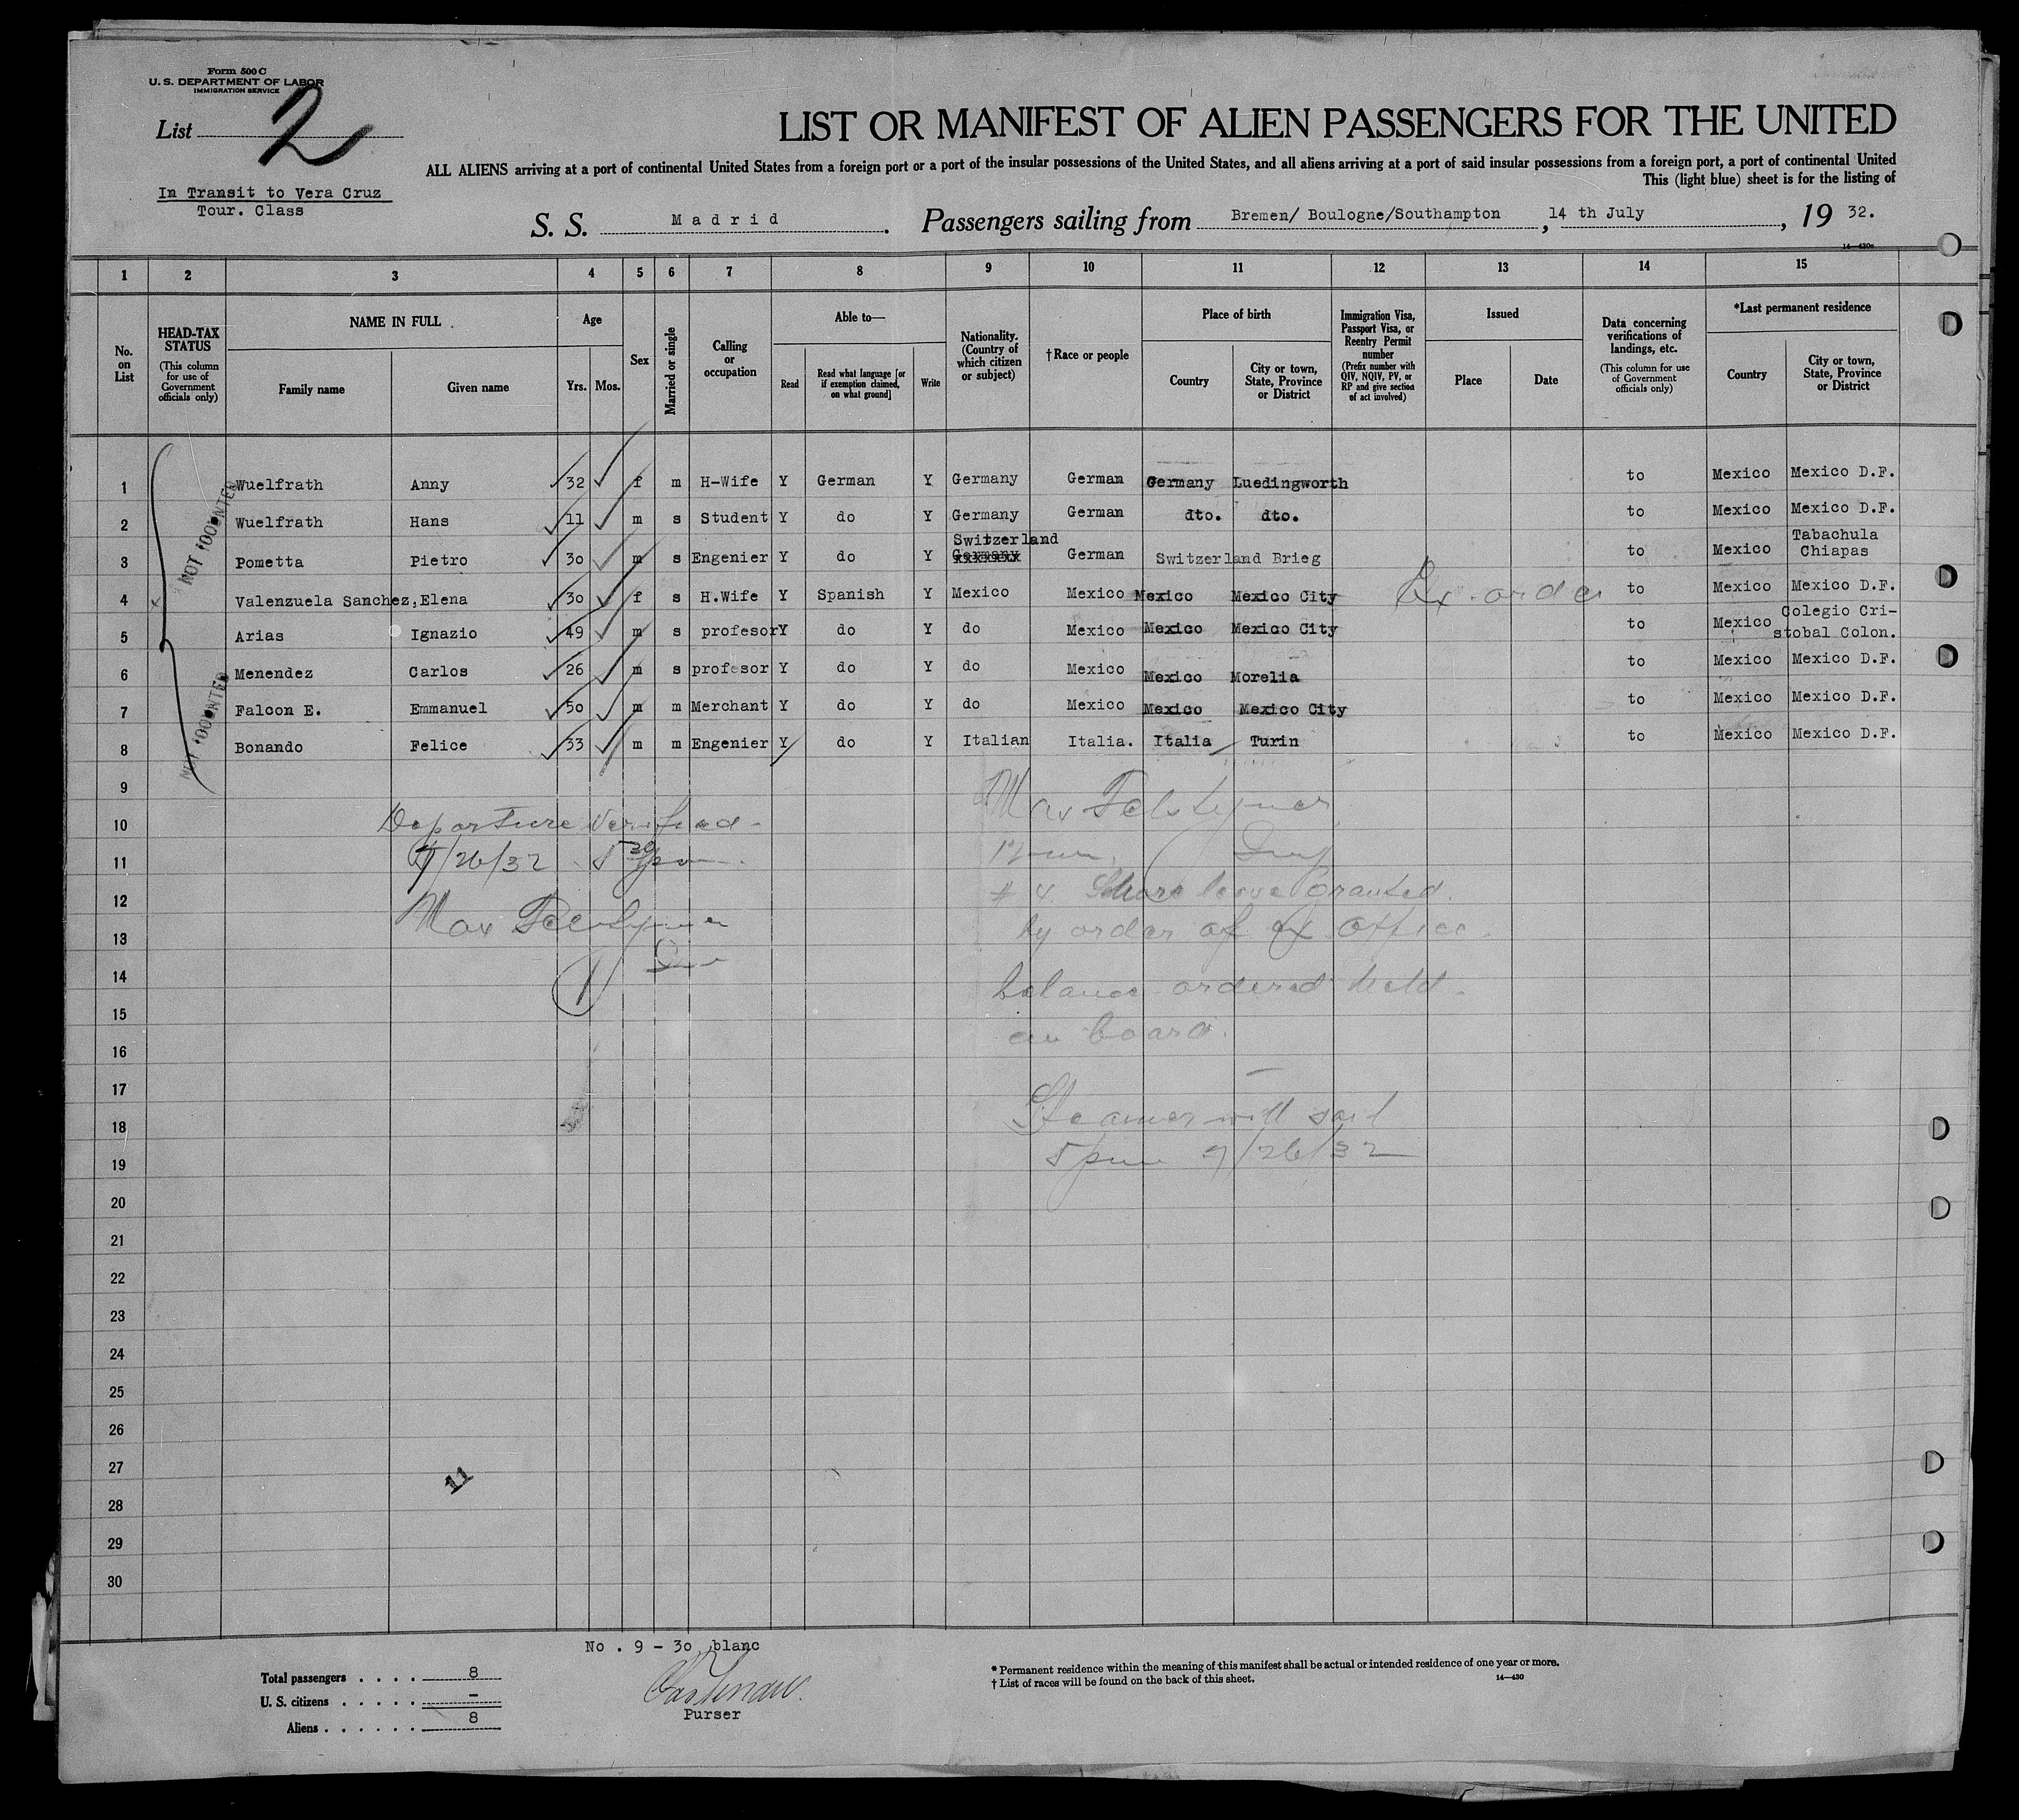 Form 500 C
U. S. DEPARTMENT OF LABOR
IMMIGRATION SERVICE
List 2
In Transit to Vera Cruz
Tour. Class
LIST OR MANIFEST OF ALIEN PASSENGERS FOR THE UNITED
ALL ALIENS arriving at a port of continental United States from a foreign port or a port of the insular possessions of the United States, and all aliens arriving at a port of said insular possessions from a foreign port, a port of continental United
This (light blue) sheet is for the listing of
S. S. Madrid. Passengers sailing from Bremen/ Boulogne/Southampton, 14 th July, 19 32.
14—430c
1 2 3 4 5 6 7 8 9 10 11 12 13 14 15
No. on List
HEAD-TAX STATUS
(This column for use of Government officials only)
NAME IN FULL
Family name Given name
Age
Yrs. Mos.
Sex
Married or single
Calling or occupation
Able to—
Read
Read what language [or if exemption claimed, on what ground]
Write
Nationality. (Country of which citizen or subject)
† Race or people
Place of birth
Country
City or town, State, Province or District
Immigration Visa, Passport Visa, or Reentry Permit number
(Prefix number with QIV, NQIV, PV, or RP and give section of act involved)
Issued
Place Date
Data concerning verifications of landings, etc.
(This column for use of Government officials only)
*Last permanent residence
Country
City or town, State, Province or District
1 Wuelfrath Anny 32 f m H-Wife Y German Y Germany German Germany Luedingworth to Mexico Mexico D.F.
2 Wuelfrath Hans 11 m s Student Y do Y Germany German dto. dto. to Mexico Mexico D.F.
3 Pometta Pietro 30 m s Engenier Y do Y Switzerland Germany German Switzerland Brieg to Mexico Tabachula Chiapas
4 Valenzuela Sanchez, Elena 30 f s H.Wife Y Spanish Y Mexico Mexico Mexico Mexico City Ex. order to Mexico Mexico D.F.
5 Arias Ignazio 49 m s profesor Y do Y do Mexico Mexico Mexico City to Mexico Colegio Cri-
stobal Colon.
6 Menendez Carlos 26 m s profesor Y do Y do Mexico Mexico Morelia to Mexico Mexico D.F.
7 Falcon E. Emmanuel 50 m m Merchant Y do Y do Mexico Mexico Mexico City to Mexico Mexico D.F.
8 Bonando Felice 33 m m Engenier Y do Y Italian Italia. Italia Turin to Mexico Mexico D.F.
9
10
11
12
13
14
15
16
17
18
19
20
21
22
23
24
25
26
27
28
29
30
Departure Verified -
7/26/32 5 30 pm
Max
# 4 Shore leave Granted.
by order of Ex Office.
balance ordered held
on board.
Steamer will sail
5 pm 7/26/32
11
No. 9 - 30 blanc
Total passengers . . . . 8
U. S. citizens . . . . . -
Aliens . . . . . . 8
Purser
* Permanent residence within the meaning of this manifest shall be actual or intended residence of one year or more.
† List of races will be found on the back of this sheet.
14—430